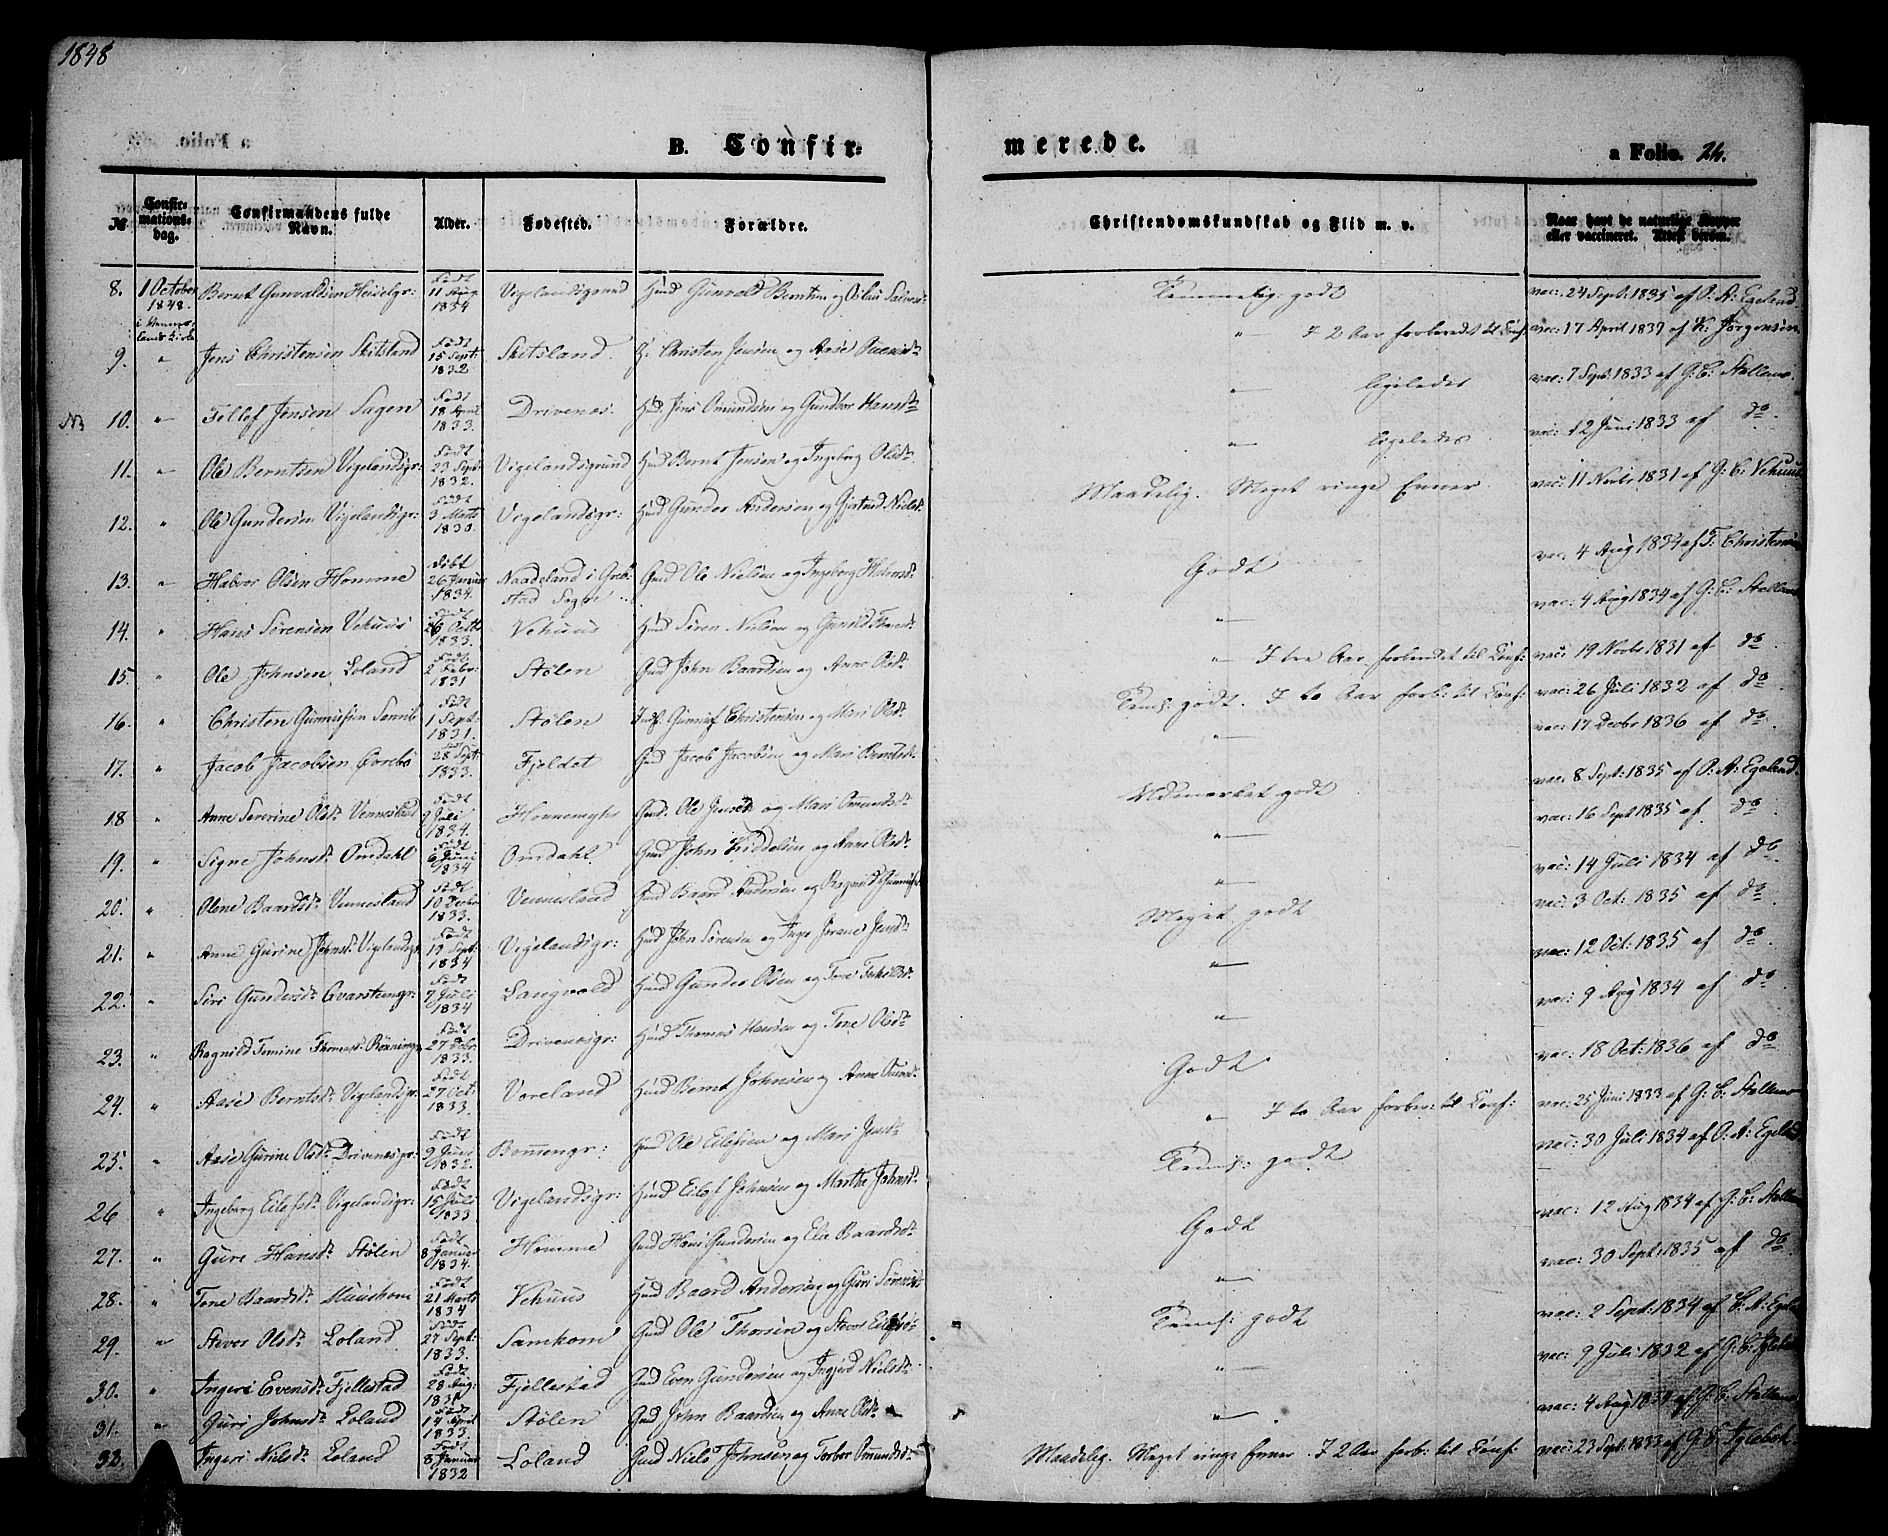 1848
B. Confir=
merede.
a Folio. 24.
№ Confir=mations=dag. Confirmandens fulde Navn. Alder. Fødested. Forældre. Christendomskundskab og Flid m. v. Naar havt de naturlige Kopper eller vaccineret. Attest derom.
8. 1 October 1848. Bernt Gunvaldsen Heiselgr: Født 11 Aug 1834 Vigelandsgrund Hmd Gunvald Berntsen og Temmelig godt vac: 24 Sept: 1835 af O. A: Egeland
9. " Jens Christensen Skitsland Født 15 Sept: 1832 Skitsland. H: Christen Jensen og Aase " I 2 Aar forberedt til Conf: vac: 17 April 1837 af K: Jørgensen
10. " Tellef Jensen Sagen Født 18 April 1833. Drivenes. Hmd. Jens Omundsen og Gundbor Hansdtr " ligeledes vac: 7 Sept: 1833 af G: C: Stallemo.
11. " Ole Berntsen Vigelandsgr: Født 23 Sept: 1832. Vigelandsgrund Hmd Bernt Jensen og Ingeborg Olsdr " ligeledes vac: 12 Juni 1833 af do
12. " Ole Gundersen Vigelandsgr: Født 3 Marts 1830. Vigelandsgr: Hmd Gunder Andersen og Gjertrud Nielsdr Maadelig. Meget ringe Evner vac: 11 Novbr 1831 af G: C: Vehuus
13. " Halvor Olsen Homme Født 26 Januar 1834. Naadeland i Greb stad Sogn Gmd Ole Nielsen og Ingeborg Halvorsdr Godt vac: 4 Aug 1834 af T: Christensen
14. " Hans Sørensen Vehuus Født 1833. Vehuus Hmd Søren Nielsen og Gunild " vac: 4 Aug 1834 af G: C: Stallemo
15. " Ole Johnsen Loland Født 2 Febr: 1831 Stølen Gmd John Baardsen og Anne Olsdr " I tre Aar forberedt til Conf: vac: 19 Novbr 1831 af do
16. " Christen Gunnufsen Født 1 Sept: 1831. Stølen Inds. Gunnuf Christensen og Mari Olsdr Tems: godt. I to Aar forb: til Conf: vac: 26 Juli 1832 af do
17. " Jacob Jacobsen Øvrebø Født 28 Sept: 1833. Fjeldet Gmd Jacob Jacobsen og Mari Berntsdr " vac: 17 Decbr 1836 af do
18 " Anne Severine Olsdr Vennesland Født 9 Juli 1834. Honnemyhr Gmd. Ole Jensen og Mari Omundsdr Udmærket godt vac: 8 Sept: 1835 af O: A: Egeland.
19. " Signe Johnsdr Omdahl Født 6 Juni 1834 Omdahl Gmd John Kiddelsen og Anne Olsdr " vac: 16 Sept 1835 af do
20. " Olene Baardsdr Vennesland Født 10 Decbr 1833. Vennesland Gmd Baard Andersen og Ragnild Gunnufsd " vac: 14 Juli 1834 af do
21. " Anne Gurine Johnsdr Vigelandsgr Født 19 Sept: 1834 Vigelandsgr: Hmd John Sørensen og Inge Jensdr Meget godt vac: 3 Oct: 1835 af do
22. " Siri Gundersdr Kvarsteingr: Født 7 Juli 1834 Langvold Hmd Gunder Olsen og Tone " vac: 12 Oct: 1835 af do
23. " Ragnild Tomine Thomasd: Rønningen Født 27 1833. Drivenesgr: Hmd Thomas Hansen og Tone Olsdtr " vac: 9 Aug 1834 af do
24. " Aase Berntsdr Vigelandsgr. Født 27 Oct: 1833. Voreland Hmd Bernt Johnsen og Anne Godt vac: 18 Oct: 1836 af do
25. " Aase Gurine Olsdr Drivenesgr: Født 9 Juni 1832. Bommengr: Hmd Ole Eilefsen og Mari Jensdr " I to Aar forber: til Conf: vac: 25 Juni 1833 af G: C: Stallemo
26 " Ingeborg Eilefsdr Vigelandsgr: Født 15 Juli 1833 Vigelandsgr: Hmd Eilef Johnsen og Marthe Johnsdr Tems: godt vac: 30 Juli 1834 af O: A: Egeland
27. " Gure Hansdr Stølen Født 8 Januar 1834. Homme Gmd Hans Gundersen og Elie Baardsdr Godt vac: 12 Aug 1834 af G: C: Stallemo
28. " Tone Baardsdr Muushom Født 21 Marts 1834 Vehuus Hmd Baard Andersen og Guri Sørensd " vac: 30 Sept: 1835 af do
29. " Stever Olsdr Loland Født 27 Sept: 1833. Samkom Gmd Ole Thorsen og Tems: godt vac: 2 Sept: 1834 af
30. " Ingeri Evensdr Fjellestad Født 28 Aug: 1831 Fjellestad Gmd Even Gundersen og Ingjerd Nielsdr " vac: 9 Juli 1832 af G: C: Iglebek
31. " Guri Johnsdr Loland Født 14 April 1833. Stølen Gmd John Baardsen og Anne Olsdr " vac: 4 Aug 1834 af G: C: Stallemo
32. " Ingeri Nielsdr Loland Født 8 Januar 1832 Loland Gmd Niels Johnsen og Torbor Omundsdr Maadelig. Meget ringe Evner. I 2 Aar forb: til Conf: vac: 23 Sept: 1833 af G: C Iglebek